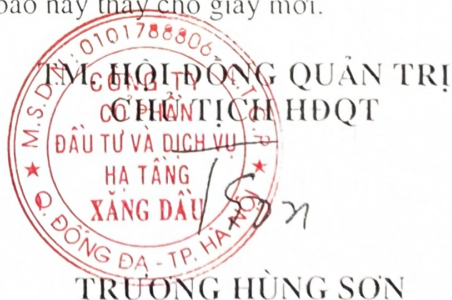 báo này thay cho giấy mời.
TM. HỘI ĐỒNG QUẢN TRỊ
CHỦ TỊCH HĐQT
M.S.D.N: 0101788806 - C.T.C.P
CÔNG TY
CỔ PHẦN
ĐẦU TƯ VÀ DỊCH VỤ
HẠ TẦNG
XĂNG DẦU
Q. ĐỐNG ĐA - TP. HÀ NỘI
Sơn
TRƯƠNG HÙNG SƠN